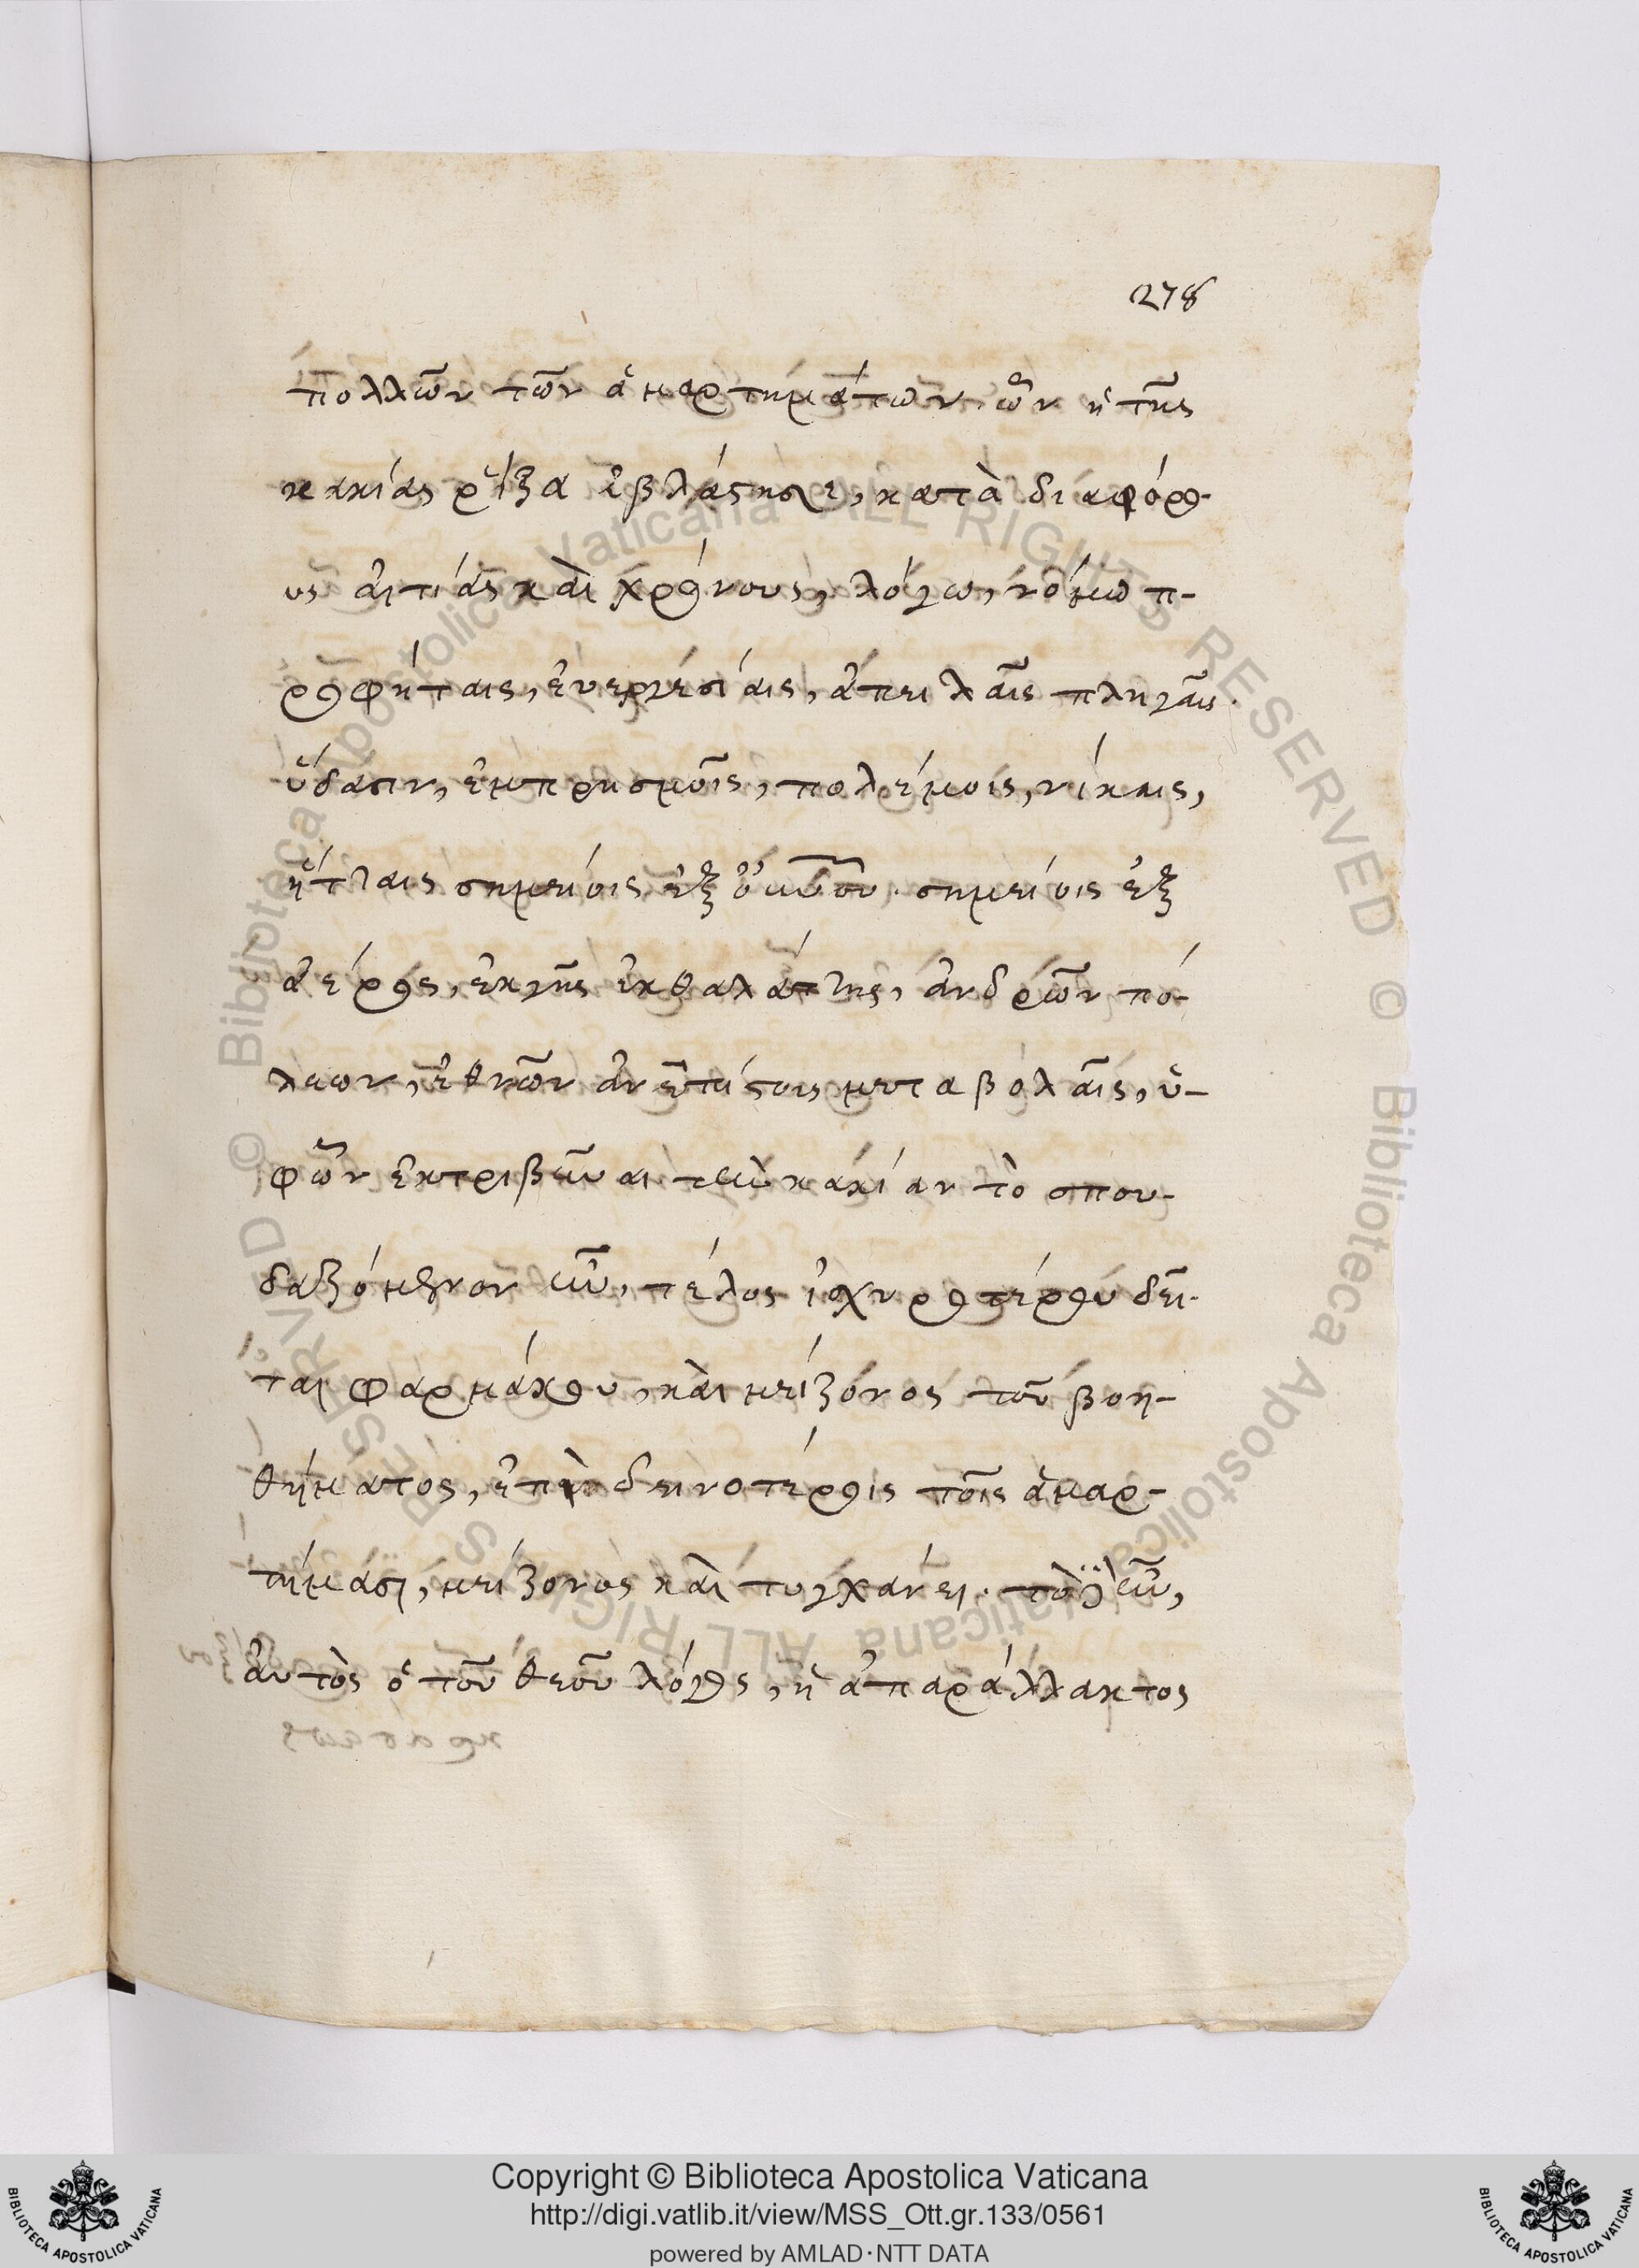 278
πολλῶν τῶν ἁμαρτημάτων, ὧν ἡ τῆς
κακίας ῥίζα ἐβλάστησε, κατὰ διαφόρο-
υς αἰτίας καὶ χρόνους, λόγω, νόμω π-
ροφήταις, ἐυεργεσίαις, ἀπειλαῖς πληγαῖς.
ὕδασιν, ἐμπρησμοῖς, πολέμοις, νίκαις,
ἥτταις σημείοις ἐξ οὐνοῦ. σημείοις ἐξ
ἀέρος, ἐκ γῆς ἐκ θαλάττης, ἀνδρῶν πό-
λεων, ἐθνῶν ἀνελπίστοις μεταβολαῖς, ὑ-
φῶν ἐκτριβῆναι τὴν κακίαν τὸ σπου-
δαζόμενον ἦν, τέλος ἰσχυροτέρου δεῖ-
ται φαρμάκου, καὶ μείζονος τοῦ βοη-
θήματος, ἐπὶ δεινοτέροις τοῖς ἁμαρ-
τήμασι, μείζονος καὶ τυγχάνει. τὸ δὲ ἦν,
ἀυτὸς ὁ τοῦ θεοῦ λόγος, ἡ ἀπαράλλακτος
Copyright © Biblioteca Apostolica Vaticana
http://digi.vatlib.it/view/MSS_Ott.gr.133/0561
powered by AMLAD·NTT DATA
BIBLIOTECA APOSTOLICA VATICANA
BIBLIOTECA APOSTOLICA VATICANA
© Biblioteca Apostolica Vaticana ALL RIGHTS RESERVED © Biblioteca Apostolica Vaticana ALL RIGHTS RESERVED